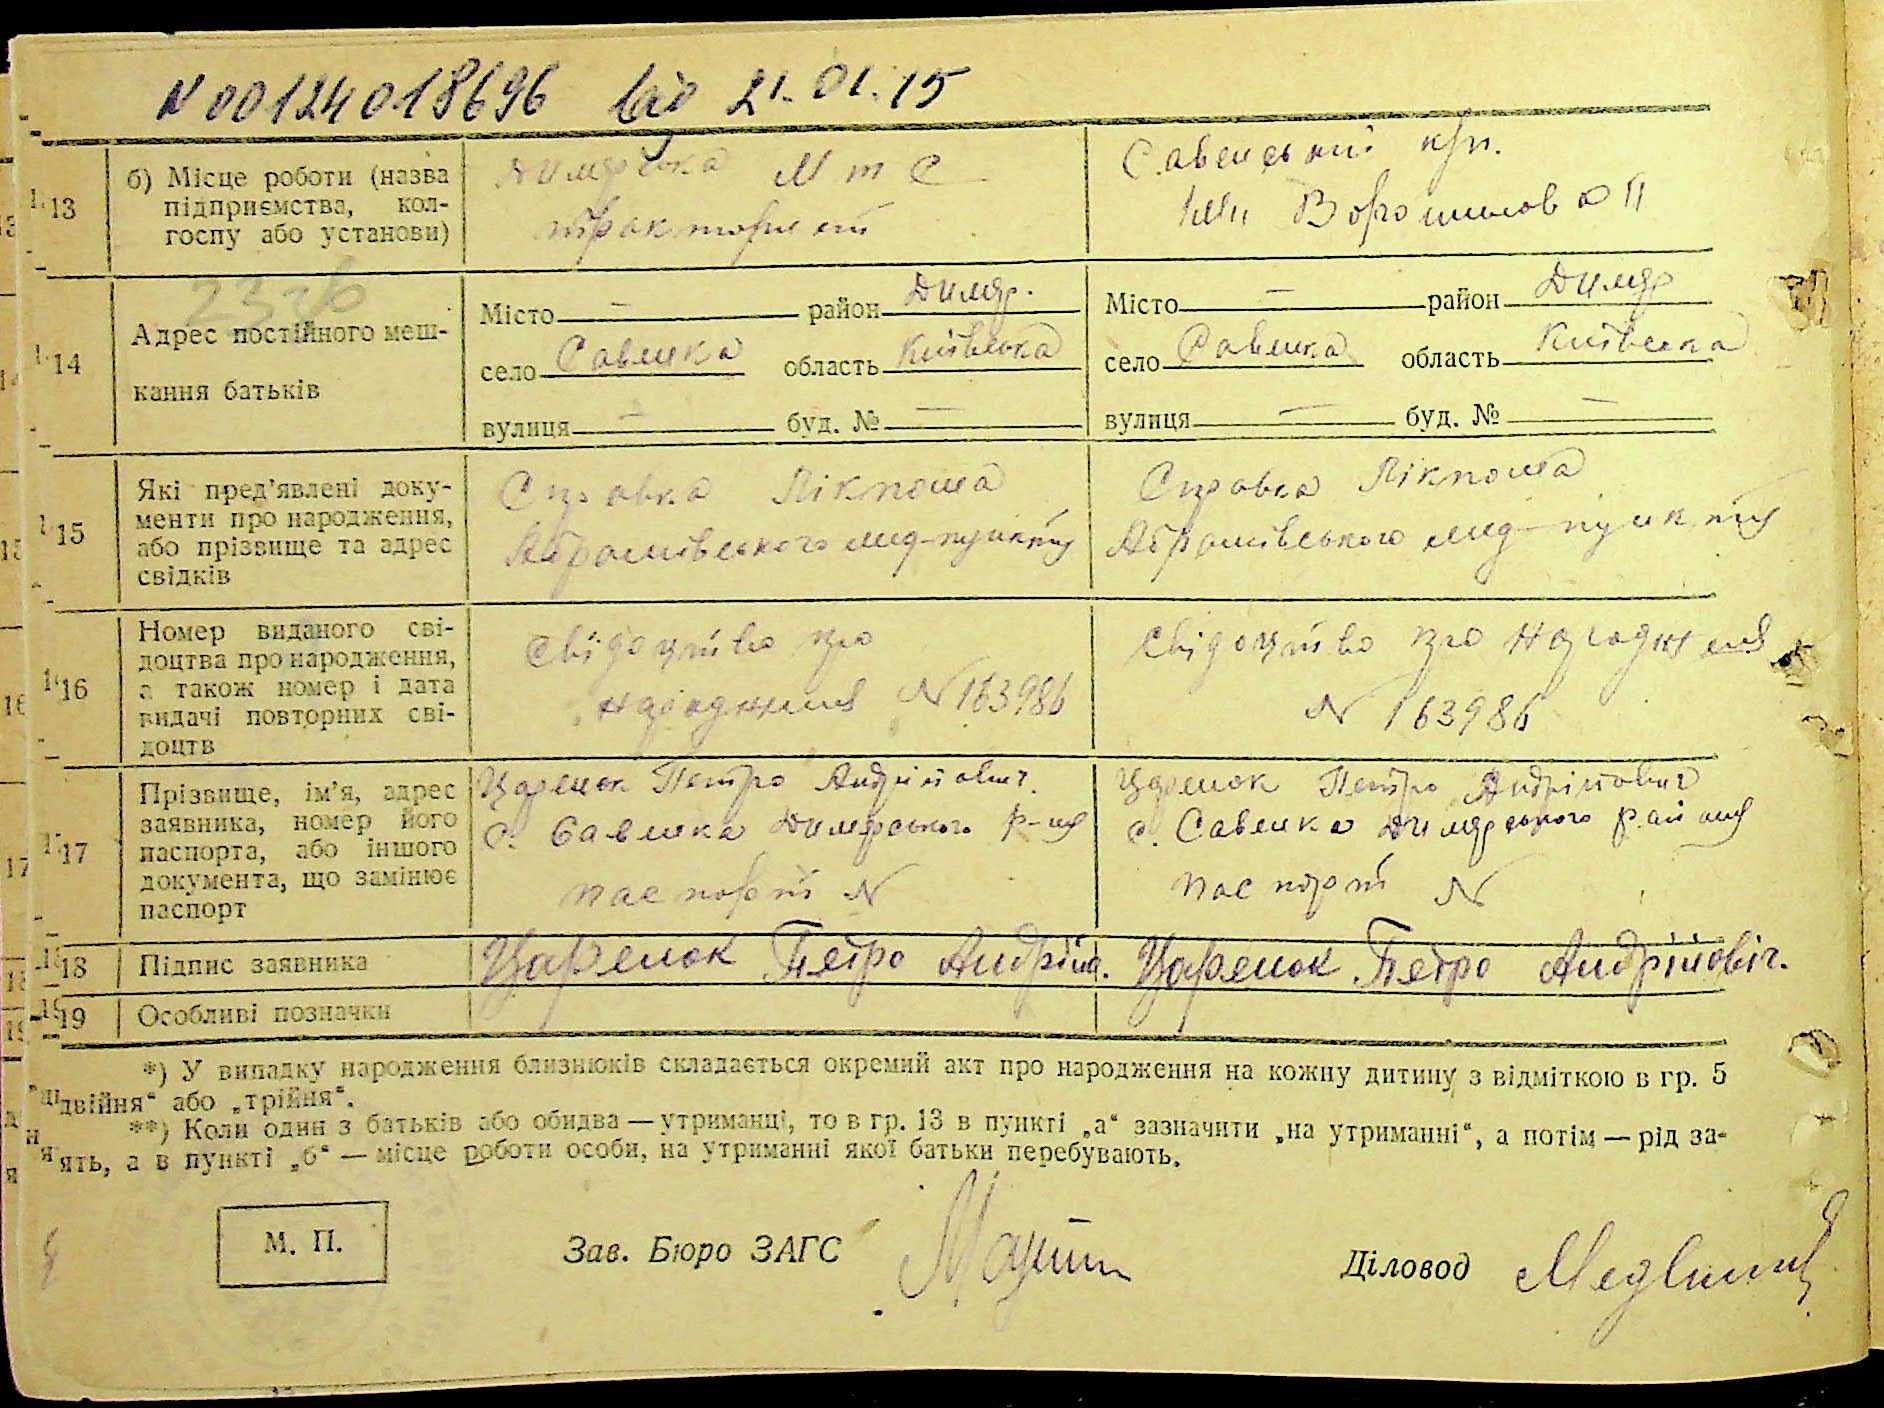 N 00124018696 від 21.01.15
13 б) Місце роботи (назва підприємства, колгоспу або установи)
Димерська М т С
тракторист
Савенський кгп.
Ім. Ворошилова
14 Адрес постійного мешкання батьків
Місто — район Димер.
село Савенка область Київська
вулиця — буд. № —
Місто — район Димер
село Савенка область Київська
вулиця — буд. № —
15 Які пред'явлені документи про народження, або прізвище та адрес свідків
Справка Лікпома
мед-пункту
Справка Лікпома
мед-пункту
16 Номер виданого свідоцтва про народження, а також номер і дата видачі повторних свідоцтв
Свідоцтво про
народження N 163986
Свідоцтво про народження
N 163986
17 Прізвище, ім'я, адрес заявника, номер його паспорта, або іншого документа, що замінює паспорт
Царенок Петро Андрійович.
с. Савенка Димерського р-ня
паспорт N
Царенок Петро Андрійович
с. Савенка Димерського района
паспорт N
18 Підпис заявника
Царенок Петро Андрійо.
Царенок Петро Андрійовіч.
19 Особливі позначки
*) У випадку народження близнюків складається окремий акт про народження на кожну дитину з відміткою в гр. 5
„двійня“ або „трійня“.
**) Коли один з батьків або обидва — утриманці, то в гр. 13 в пункті „а“ зазначити „на утриманні“, а потім — рід за-
нять, а в пункті „б“ — місце роботи особи, на утриманні якої батьки перебувають.
М. П.
Зав. Бюро ЗАГС
Діловод